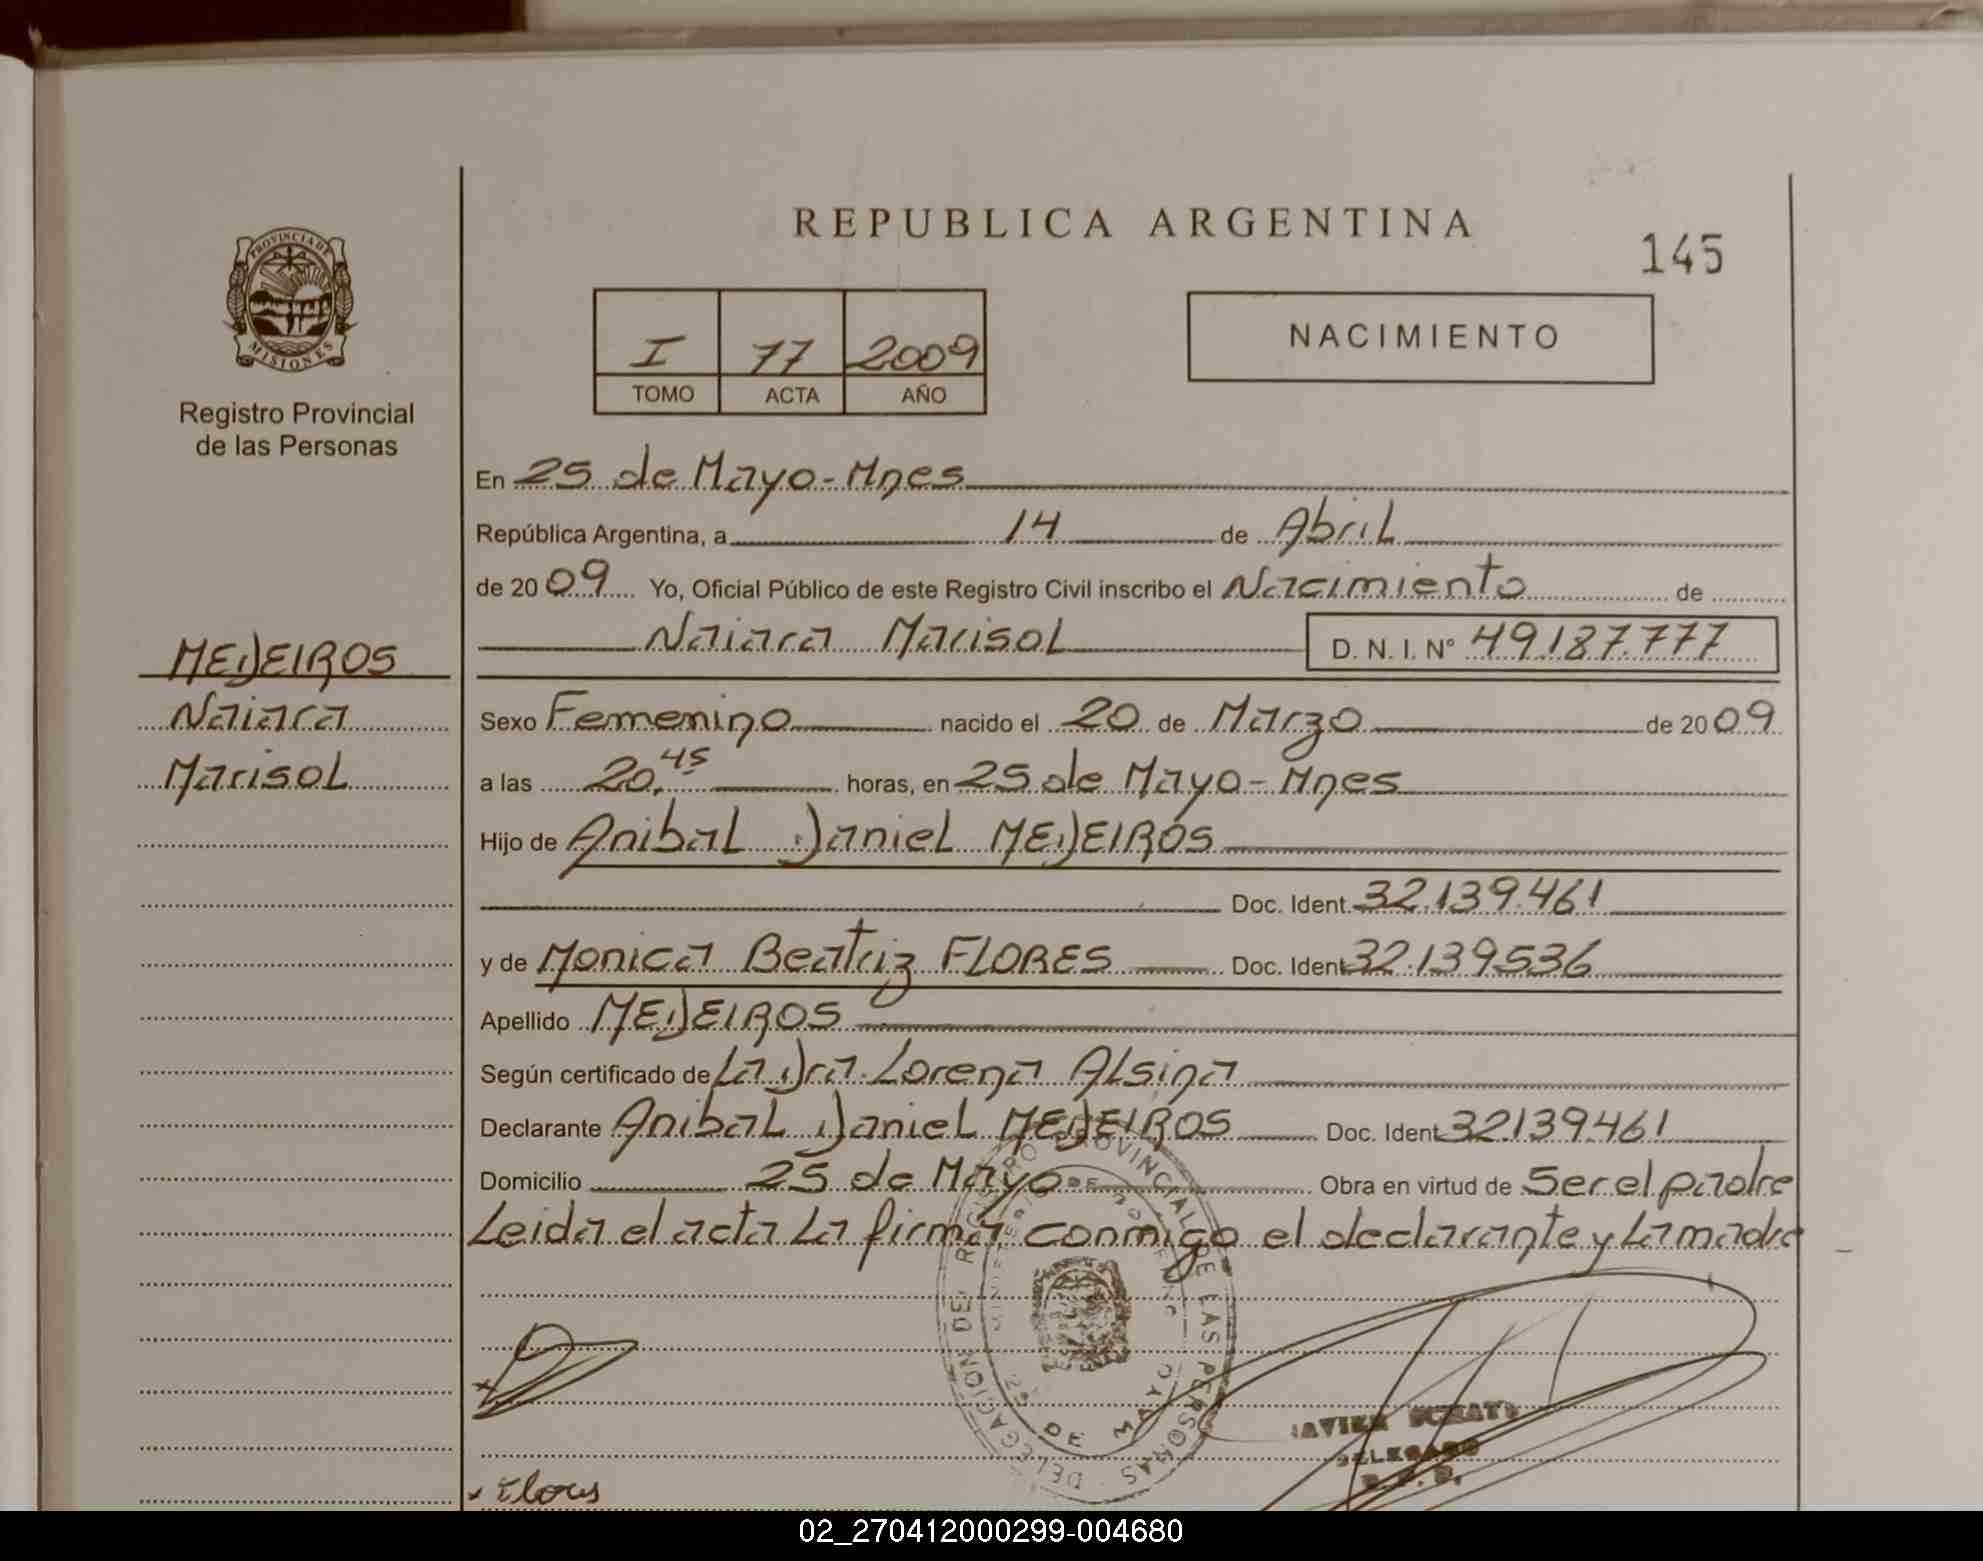 REPUBLICA ARGENTINA
145
PROVINCIA DE
MISIONES
Registro Provincial
de las Personas
I 77 2009
TOMO ACTA AÑO
NACIMIENTO
En 25 de Mayo - Mnes
República Argentina, a 14 de Abril
de 2009 Yo, Oficial Público de este Registro Civil inscribo el Nacimiento de
Naiara Marisol D. N. I. N° 49.187.777
MEDEIROS
Naiara
Marisol
Sexo Femenino nacido el 20 de Marzo de 2009
a las 20.45 horas, en 25 de Mayo - Mnes
Hijo de Anibal Daniel MEDEIROS
Doc. Ident. 32.139.461
y de Monica Beatriz FLORES Doc. Ident. 32.139536
Apellido MEDEIROS
Según certificado de La Dra. Lorena Alsina
Declarante Anibal Daniel MEDEIROS Doc. Ident. 32139461
Domicilio 25 de Mayo Obra en virtud de Ser el padre
Leida el acta La firma conmigo el declarante y La madre
DELEGACION DEL REGISTRO PROVINCIAL DE LAS PERSONAS
MINISTERIO DE GOBIERNO
25 DE MAYO
DELEGADO
Flores
02_270412000299-004680